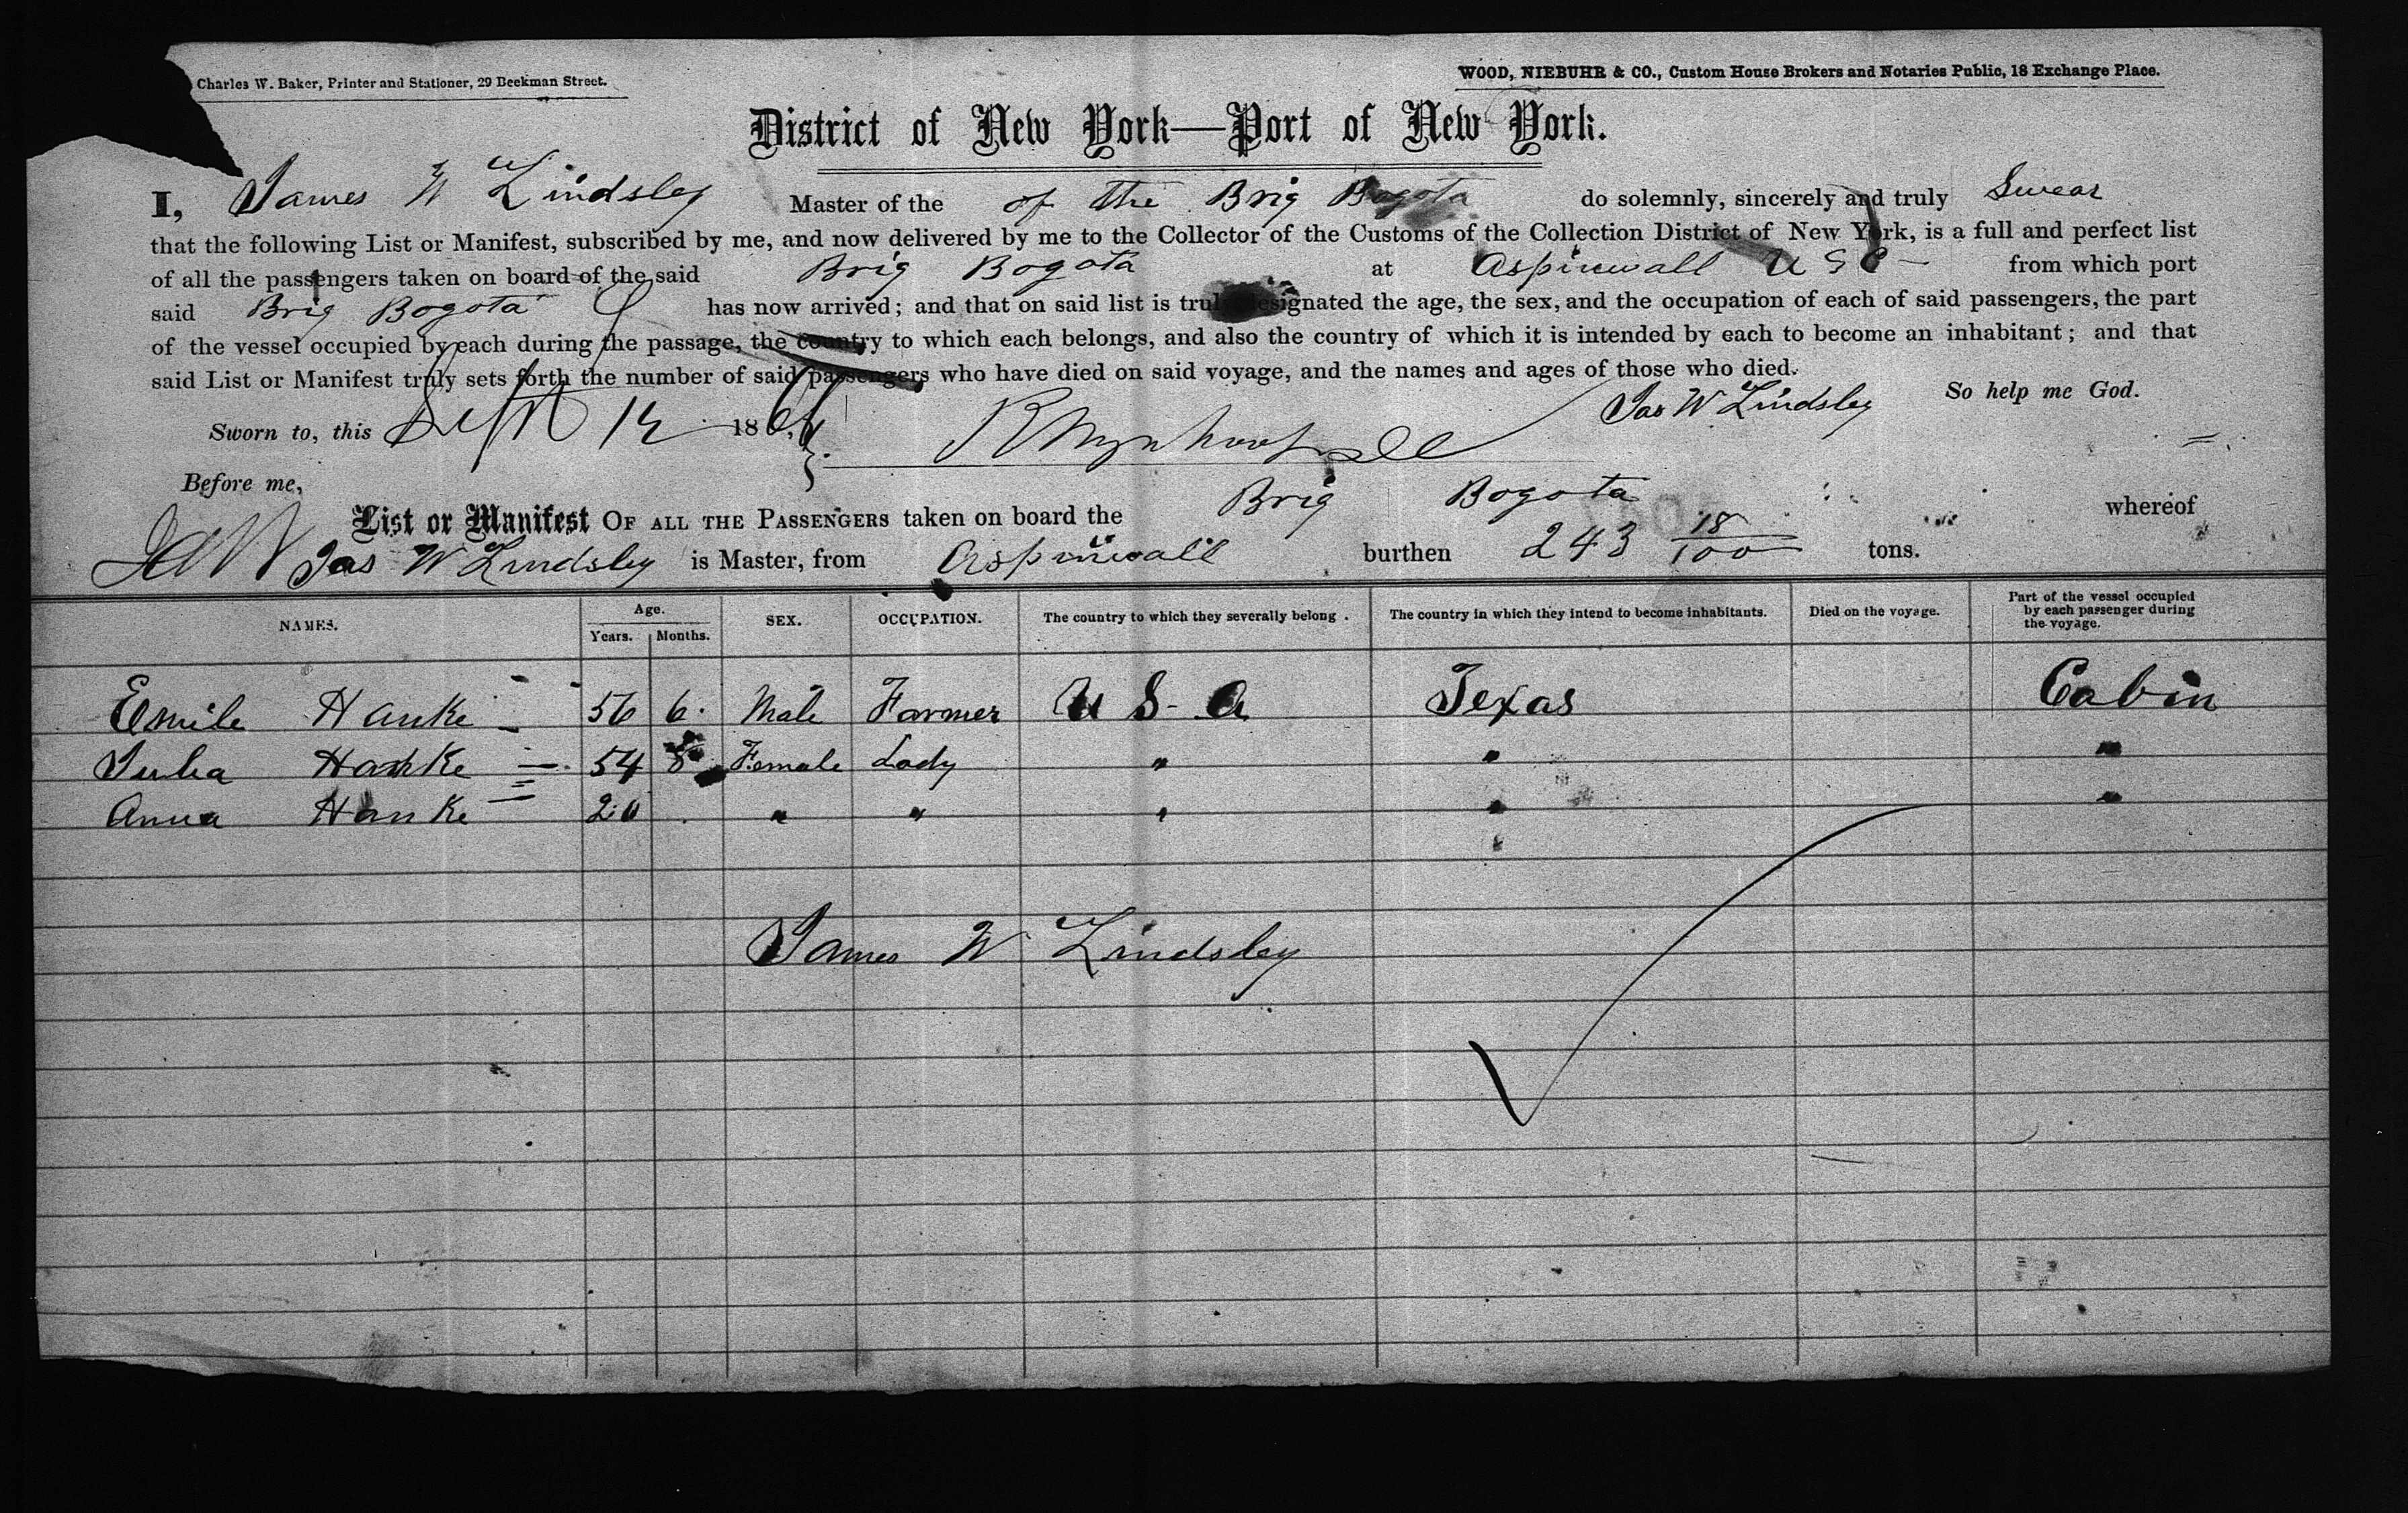 Charles W. Baker, Printer and Stationer, 29 Beekman Street.
WOOD, NIEBUHR & CO., Custom House Brokers and Notaries Public, 18 Exchange Place.
District of New York—Port of New York.
I, James W Lindsley Master of the of the Brig Bogota do solemnly, sincerely and truly Swear
that the following List or Manifest, subscribed by me, and now delivered by me to the Collector of the Customs of the Collection District of New York, is a full and perfect list
of all the passengers taken on board of the said Brig Bogota at Aspinwall U S C from which port
said Brig Bogota has now arrived; and that on said list is truly designated the age, the sex, and the occupation of each of said passengers, the part
of the vessel occupied by each during the passage, the country to which each belongs, and also the country of which it is intended by each to become an inhabitant; and that
said List or Manifest truly sets forth the number of said passengers who have died on said voyage, and the names and ages of those who died.
So help me God.
Jas W Lindsley
Sworn to, this Sept 186
Before me,
List or Manifest OF ALL THE PASSENGERS taken on board the Brig Bogota whereof
JAW Jas W Lindsley is Master, from Aspinwall burthen 243 18/100 tons.
NAMES. Age. Years. Months. SEX. OCCUPATION. The country to which they severally belong. The country in which they intend to become inhabitants. Died on the voyage. Part of the vessel occupied by each passenger during the voyage.
Emile Hanke 56 6 Male Farmer U S A Texas Cabin
Julia Hanke 54 8 Female Lady " " "
Anna Hanke 20 " " " " "
James W Lindsley